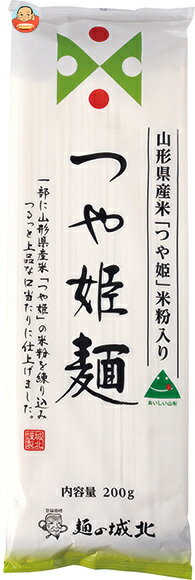 山形県産米「つや姫」米粉入り
つや姫麺
一部に山形県産米「つや姫」の米粉を練り込み
つるっと上品な口当たりに仕上げました。
おいしい山形
城北
謹製
内容量 200g
登録商標
麺の城北